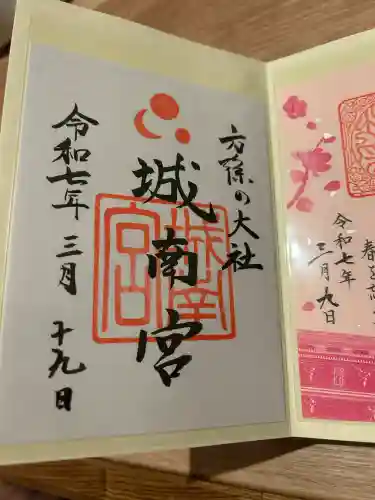 方除の大社
城南宮
城南宮
令和七年 三月 十九日
令和七年
三月九日